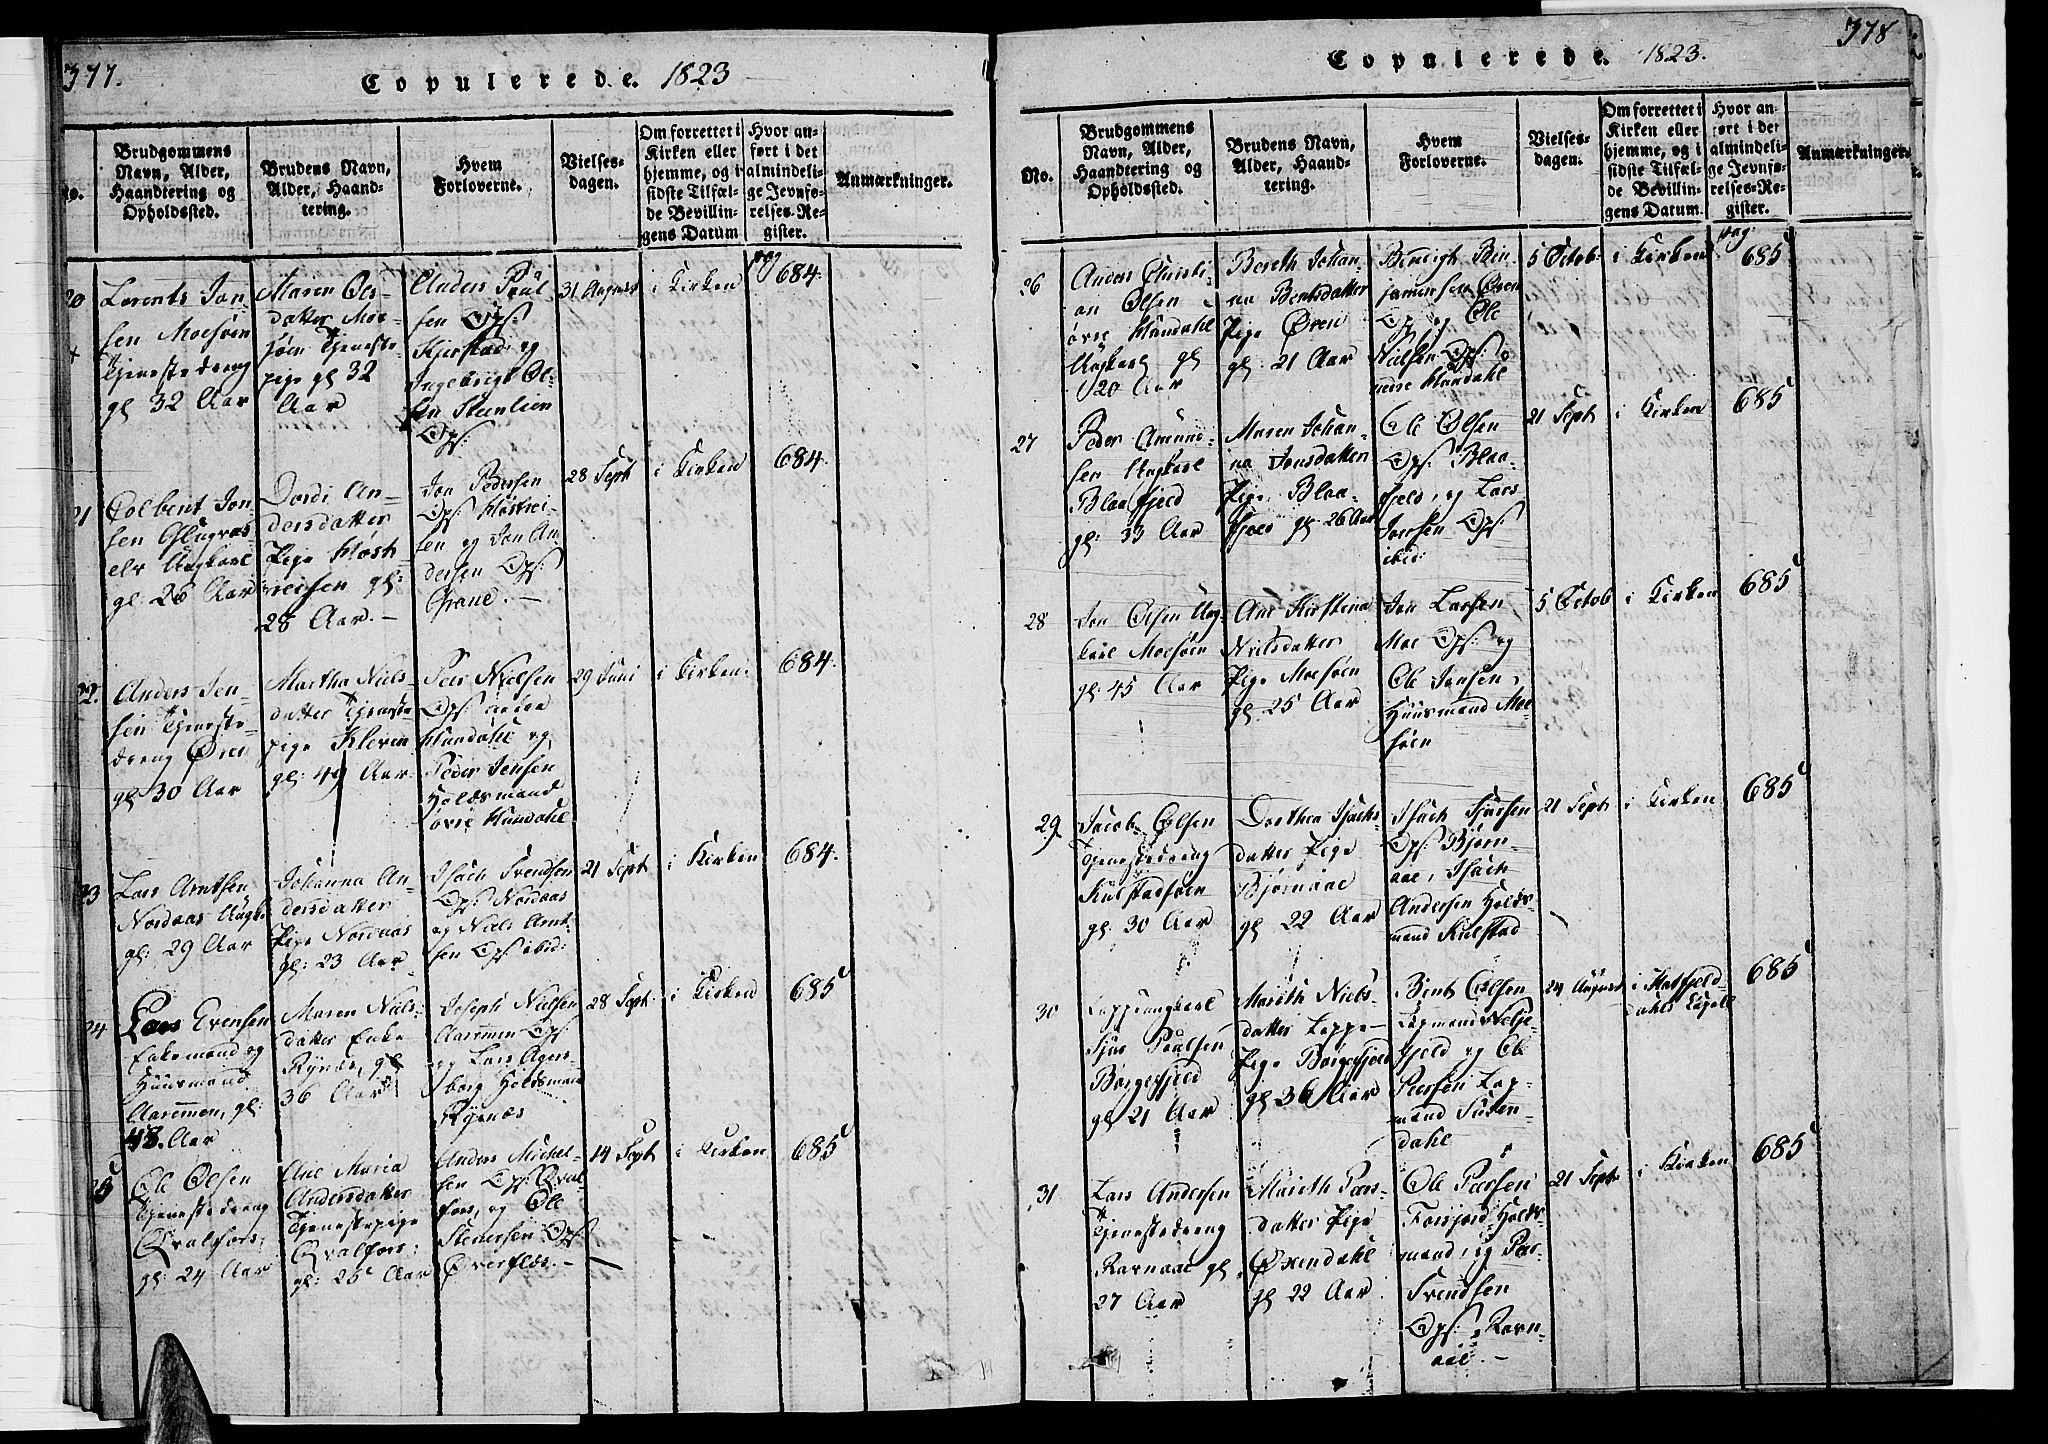 377.
Copulerede. 1823
No.
Brudgommens
Navn, Alder,
Haandtering og
Opholdssted.
Brudens Navn,
Alder, Haand-
tering.
Hvem
Forloverne.
Vielses-
dagen.
Om forrettet i
Kirken eller
hjemme, og i
sidste Tilfæl-
de Bevillin-
gens Datum
Hvor an-
ført i det
almindeli-
ge Jevnfø-
relses-Re-
gister.
Anmærkninger.
20
Lorents Jon-
sen Moesøen
Tjenestedreng
gl 32 Aar
Maren Ols-
datter Moe-
søen Tjeneste-
pige gl 32
Aar
Anders Paul
sen Ops:
Kjerstad og
Ingebrigt Ol-
sen Steenlien
Ops:
31 August
i Kirken
pag
684.
21
Colbent Jon-
sen
Ungkarl
gl: 26 Aar
Dordi An-
dersdatter
Pige
gl:
28 Aar.
Jon Pedersen
Ops:
sen og Jon An
dersen Ops:
Grane.
28 Sept
i Kirken
684.
22.
Anders Jen-
sen Tjeneste-
dreng Øren
gl 30 Aar
Martha Niels-
datter Tjeneste
pige Kleven
gl: 49 Aar
Peder Nielsen
Ops: nedre
Hundahl og
Peder Jensen
Holdsmand
øvre Hundahl
29 Juni
i Kirken.
684.
23
Lars Arntsen
Nordaas Ungk:
gl: 29 Aar
Johanna An-
dersdatter
Pige Nordaas
gl: 23 Aar
Isach Svendsen
Ops: Nordaas
og Niels Arnt-
sen Ops: ibid:
21 Sept
i Kirken
684.
24
Lars Evensen
Enkemand og
Huusmand
Aaremmen, gl:
48 Aar
Maren Niels-
datter Enke
Rynes, gl
36 Aar
Joseph Nielsen
Aaremmen Ops
og Lars Agers-
borg Holdsmand
Rynæs
28 Sept:
i Kirken
685
25
Ole Olsen
Tjenestedreng
Qvalfors:
gl: 24 Aar
Ane Maria
Andersdatter
Tjenestepige
Qvalfors:
gl: 25 Aar
Anders Michel-
sen Ops: Qval
fors, og Ole
Stenersen Ops:
14 Sept
i Kirken
685
378
Copulerede. 1823.
No.
Brudgommens
Navn, Alder,
Haandtering og
Opholdssted.
Brudens Navn,
Alder, Haand-
tering.
Hvem
Forloverne.
Vielses-
dagen.
Om forrettet i
Kirken eller
hjemme, og i
sidste Tilfæl-
de Bevillin-
gens Datum
Hvor an-
ført i det
almindeli-
ge Jevnfø-
relses-Re-
gister.
Anmærkninger.
26
Anders Christi-
an Olsen
øvre Hundahl
Ungkarl gl
20 Aar
Bereth Johan-
na Bentsdatter
Pige Øren
gl: 21 Aar
Bendigt Ben-
jaminsen Øren
Ops og Ole
Nielsen Ops:
nedre Hundahl
5 Octob:
i Kirken
pag:
685
27
Peder Amund-
sen Ungkarl
Blaafjeld
gl: 33 Aar
Maren Johan-
na Jonsdatter
Pige Blaa-
fjeld gl. 26 Aar
Ole Olsen
Ops: Blaa-
fjeld, og Lars
Jonsen Ops
ibid:
21 Sept
i Kirken
685
28
Jon Olsen Ung-
karl Moesøen
gl: 45 Aar
Ane Kirstina
Nielsdatter
Pige Moesøen
gl. 25 Aar
Jon Larsen
Moe Ops: og
Ole Jonsen,
Huusmand Moe-
søen
5 Octob
i Kirken
685
29
Jacob Olsen
Tjenestedreng
Kulstadsøen
gl: 30 Aar
Dorthea Isachs-
datter Pige
Bjørnaae
gl 22 Aar
Isach Sjursen
Ops: Bjørn-
aae, Isach
Andersen Holds-
mand Kulstad
21 Sept
i Kirken
685
30
Lappeungkarl
Sjur Paulsen
Børgefjeld
gl 21 Aar
Mareth Niels-
datter Lappe-
Pige Børgefjeld
gl 36 Aar
Bent Olsen
Lapmand
fjeld og Ole
Peersen Lap-
mand Susen-
dahl
24 August
i Hatfjeld
dahls Capell
685
31
Lars Andersen
Tjenestedreng
Ravnaae gl
27 Aar
Mareth Peers-
datter Pige
Øxendahl
gl 22 Aar
Ole Peersen
Forsjord Holds-
mand, og Peer
Svendsen
Ops: Ravn-
aae.
21 Sept
i Kirken
685